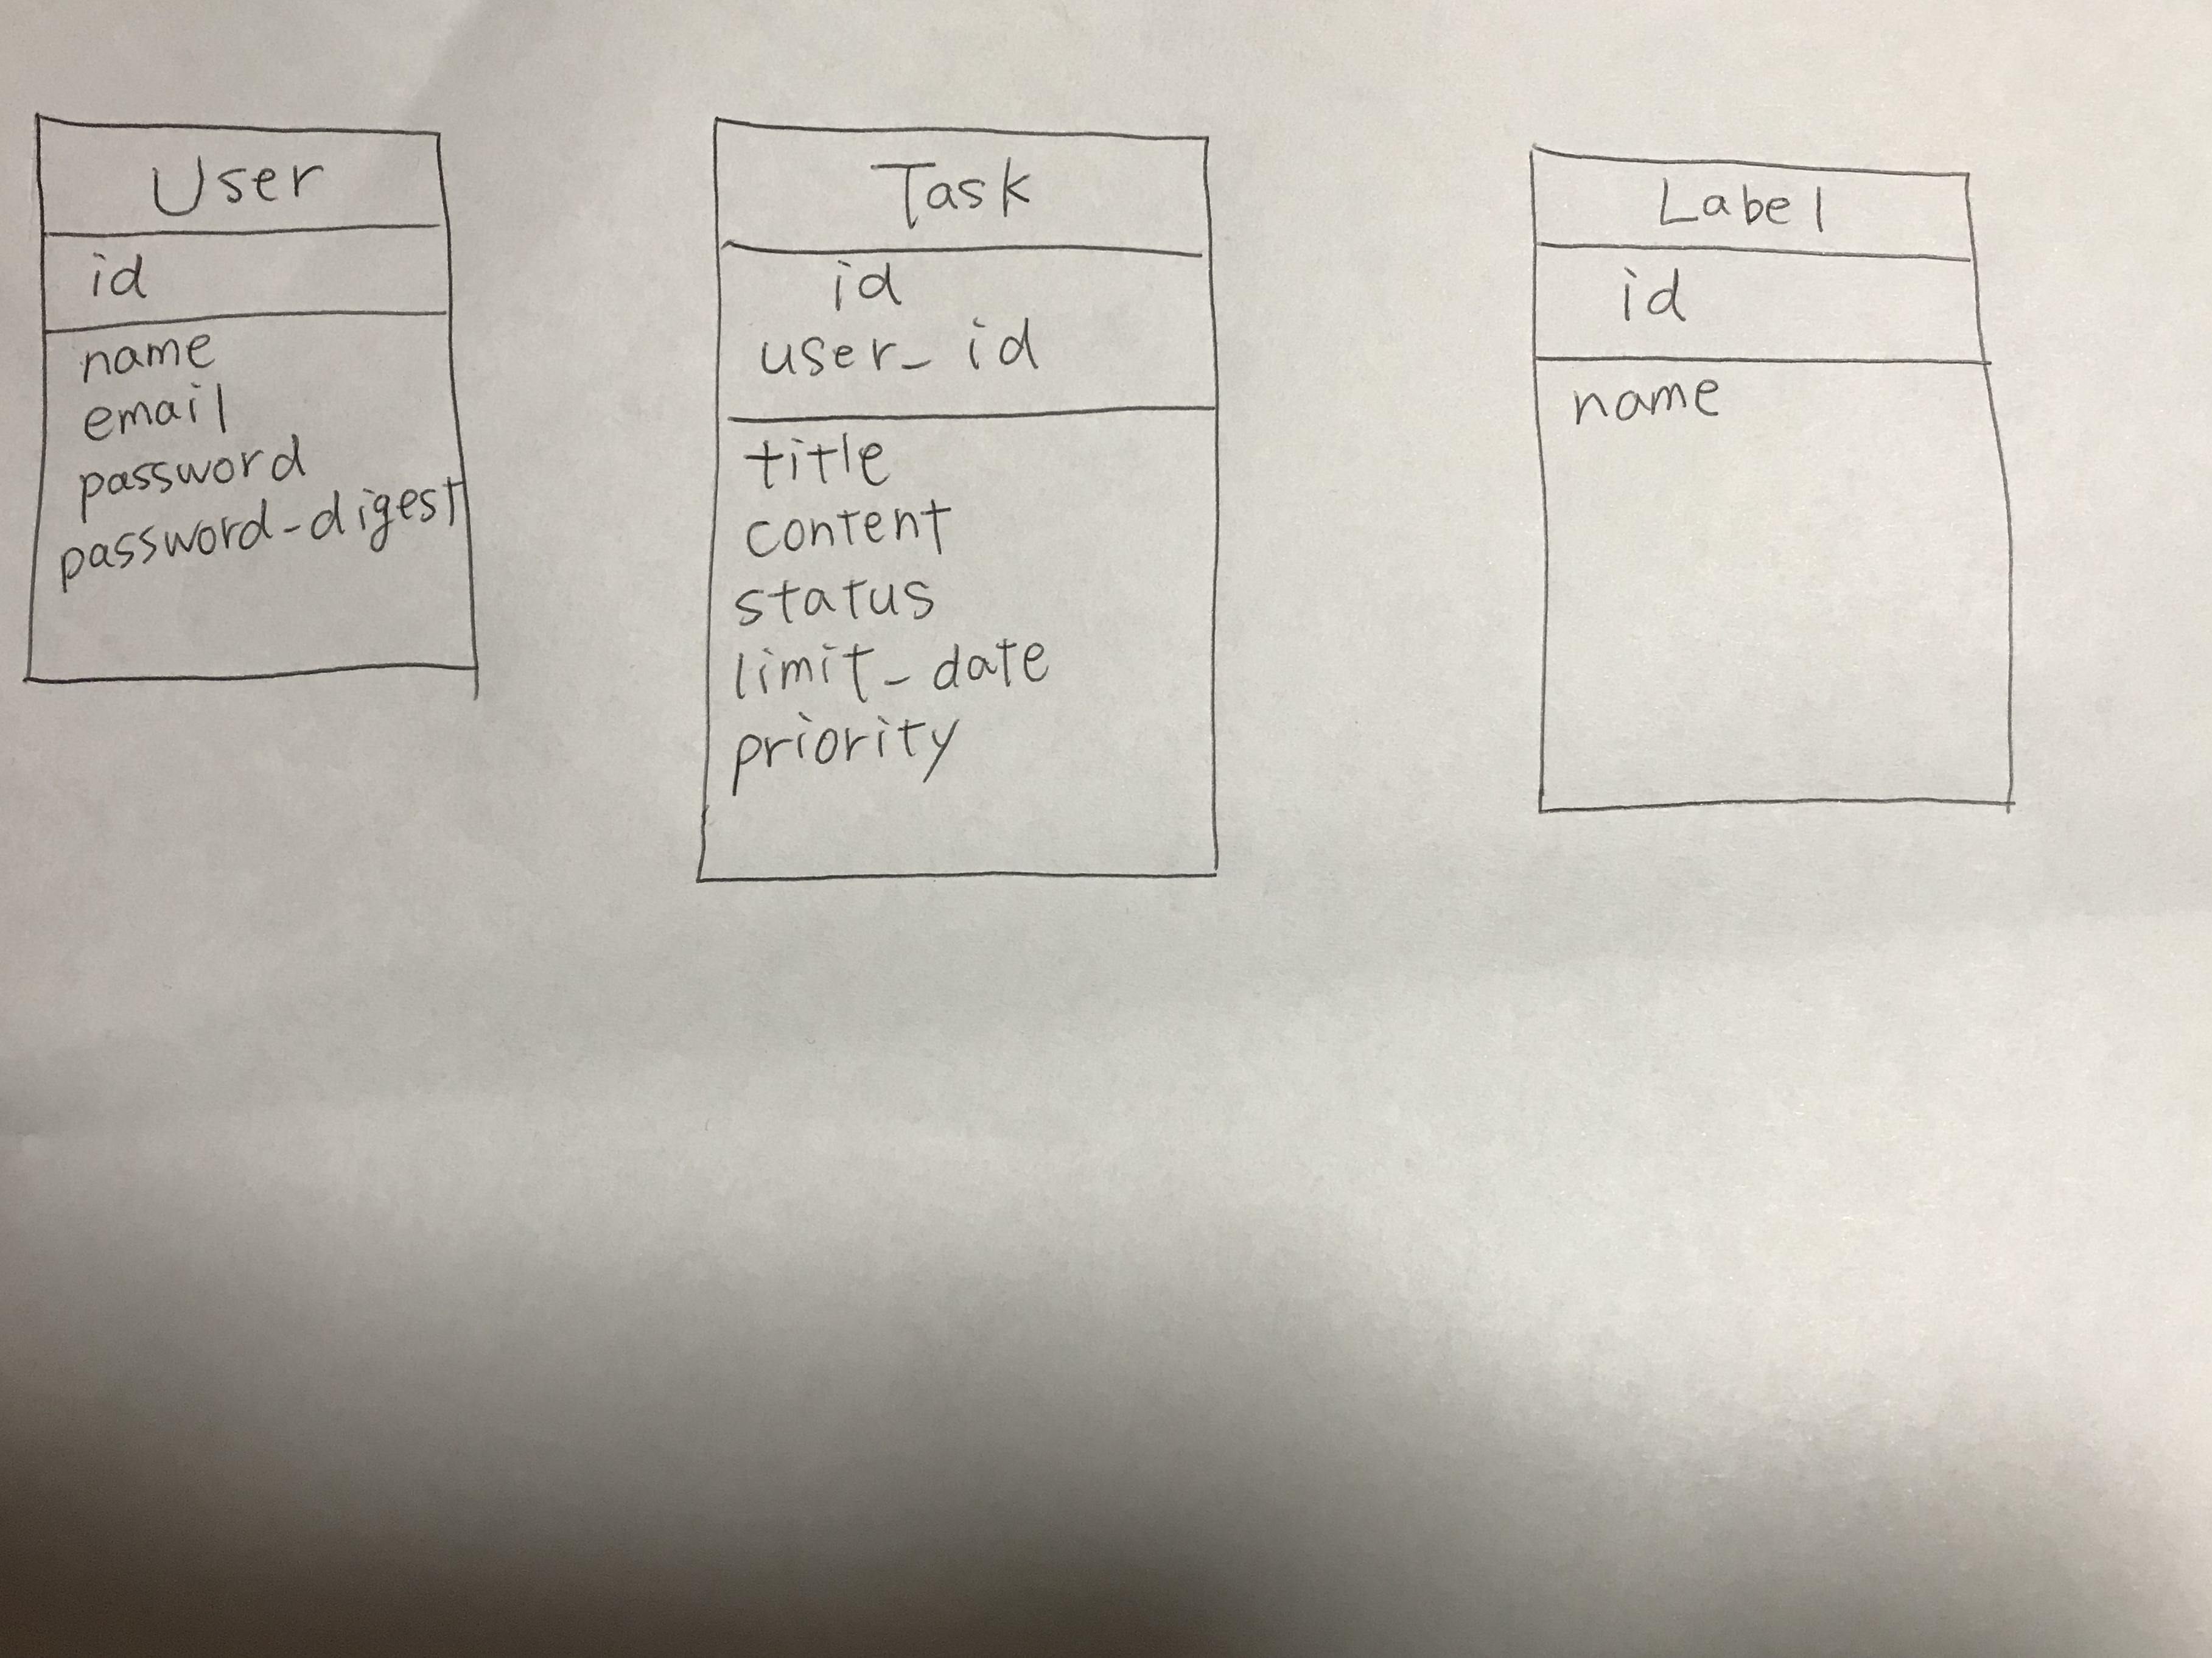 User
id
name
email
password
password-digest
Task
id
user_id
title
content
status
limit_date
priority
Label
id
name